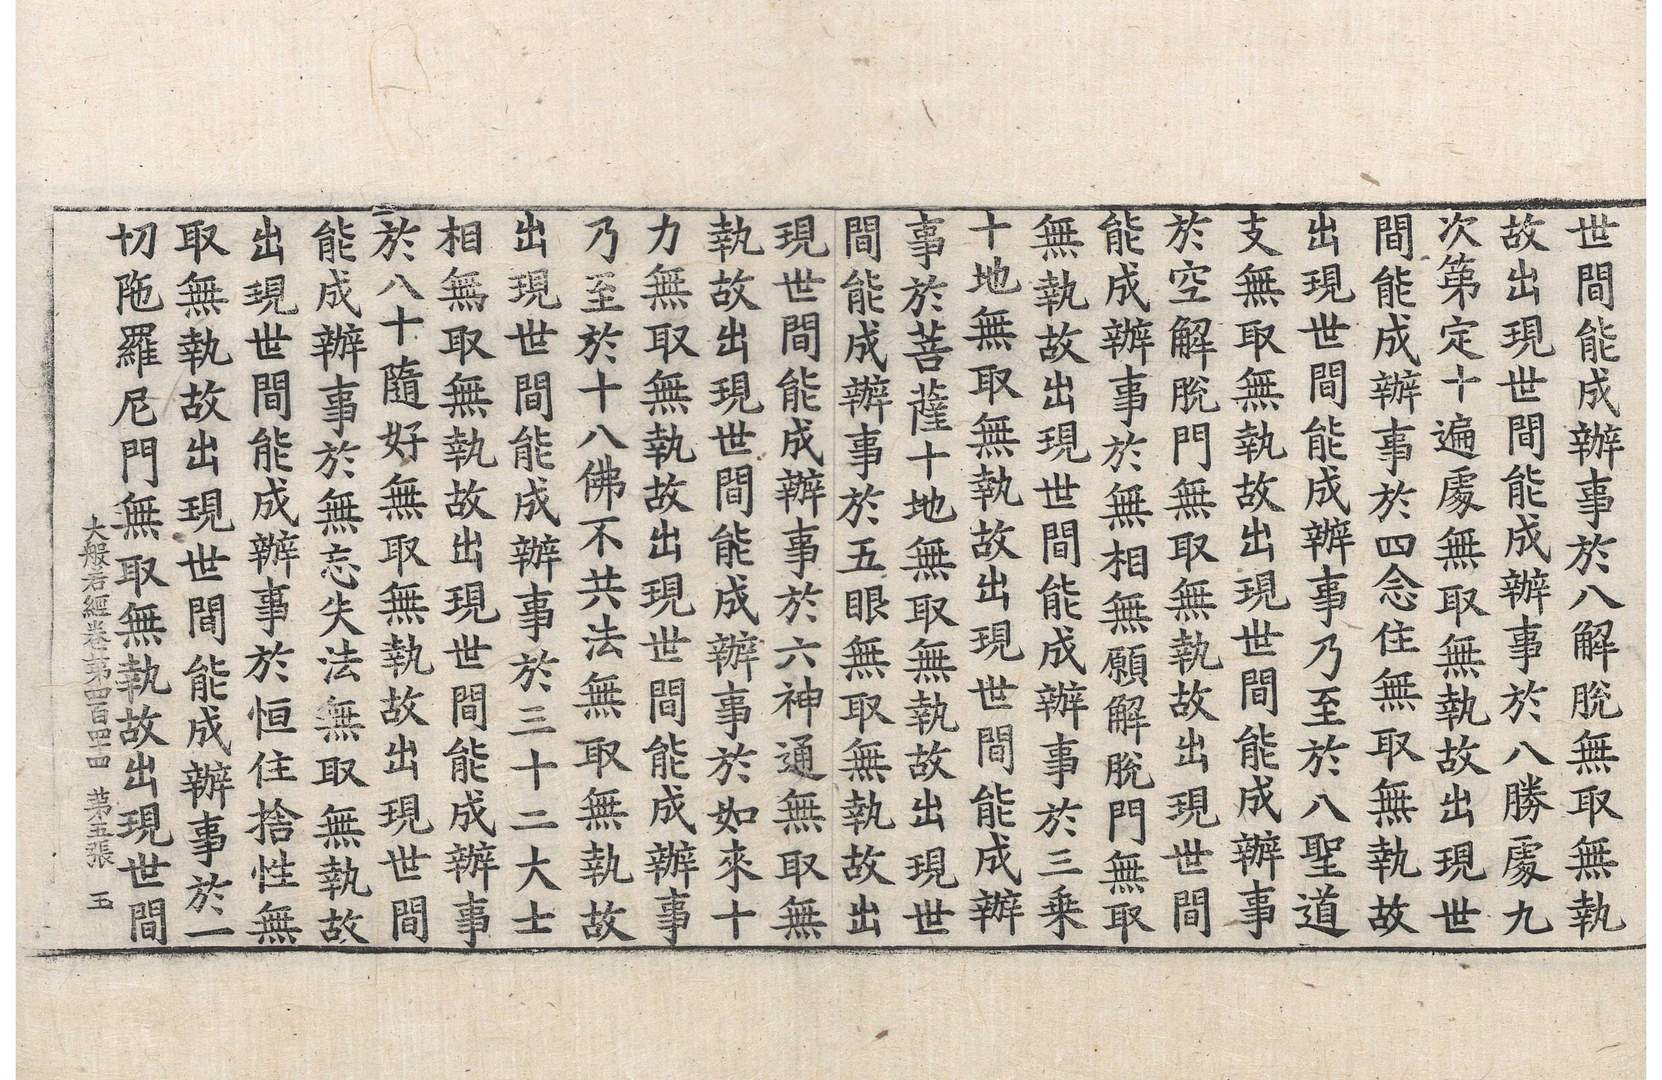 世間能成辦事於八解脫無取無執
故出現世間能成辦事於八勝處九
次第定十遍處無取無執故出現世
間能成辦事於四念住無取無執故
出現世間能成辦事乃至於八聖道
支無取無執故出現世間能成辦事
於空解脫門無取無執故出現世間
能成辦事於無相無願解脫門無取
無執故出現世間能成辦事於三乘
十地無取無執故出現世間能成辦
事於菩薩十地無取無執故出現世
間能成辦事於五眼無取無執故出
現世間能成辦事於六神通無取無
執故出現世間能成辦事於如來十
力無取無執故出現世間能成辦事
乃至於十八佛不共法無取無執故
出現世間能成辦事於三十二大士
相無取無執故出現世間能成辦事
於八十隨好無取無執故出現世間
能成辦事於無忘失法無取無執故
出現世間能成辦事於恒住捨性無
取無執故出現世間能成辦事於一
切陁羅尼門無取無執故出現世間
大般若經卷第四百四十四 第五張 玉